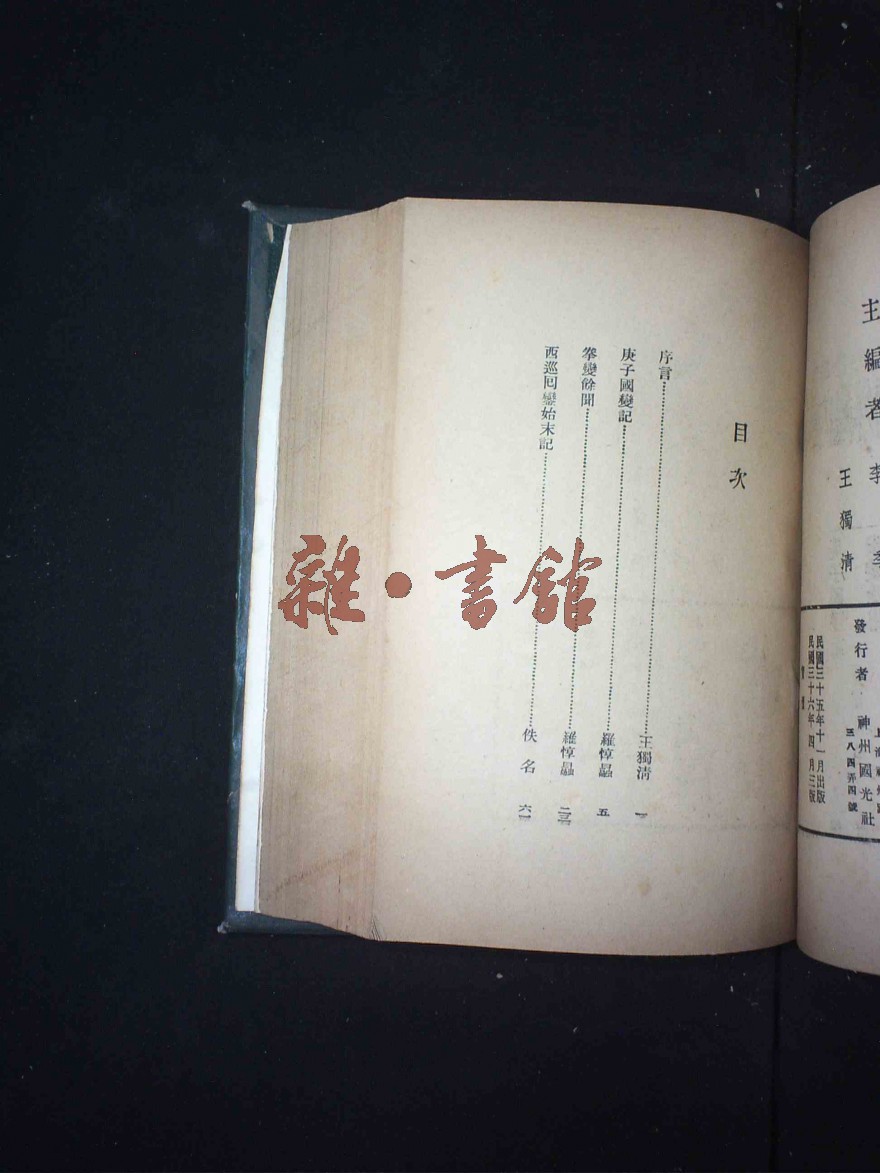 主編者
李
季
王獨清
發行者
神州國光社
三八四弄四號
民國三十五年十一月出版
民國三十六年四月三版
目次
序言……王獨清 一
庚子國變記……羅惇曧 五
拳變餘聞……羅惇曧 二三
西巡囘鑾始末記……佚名 六一
雜·書館